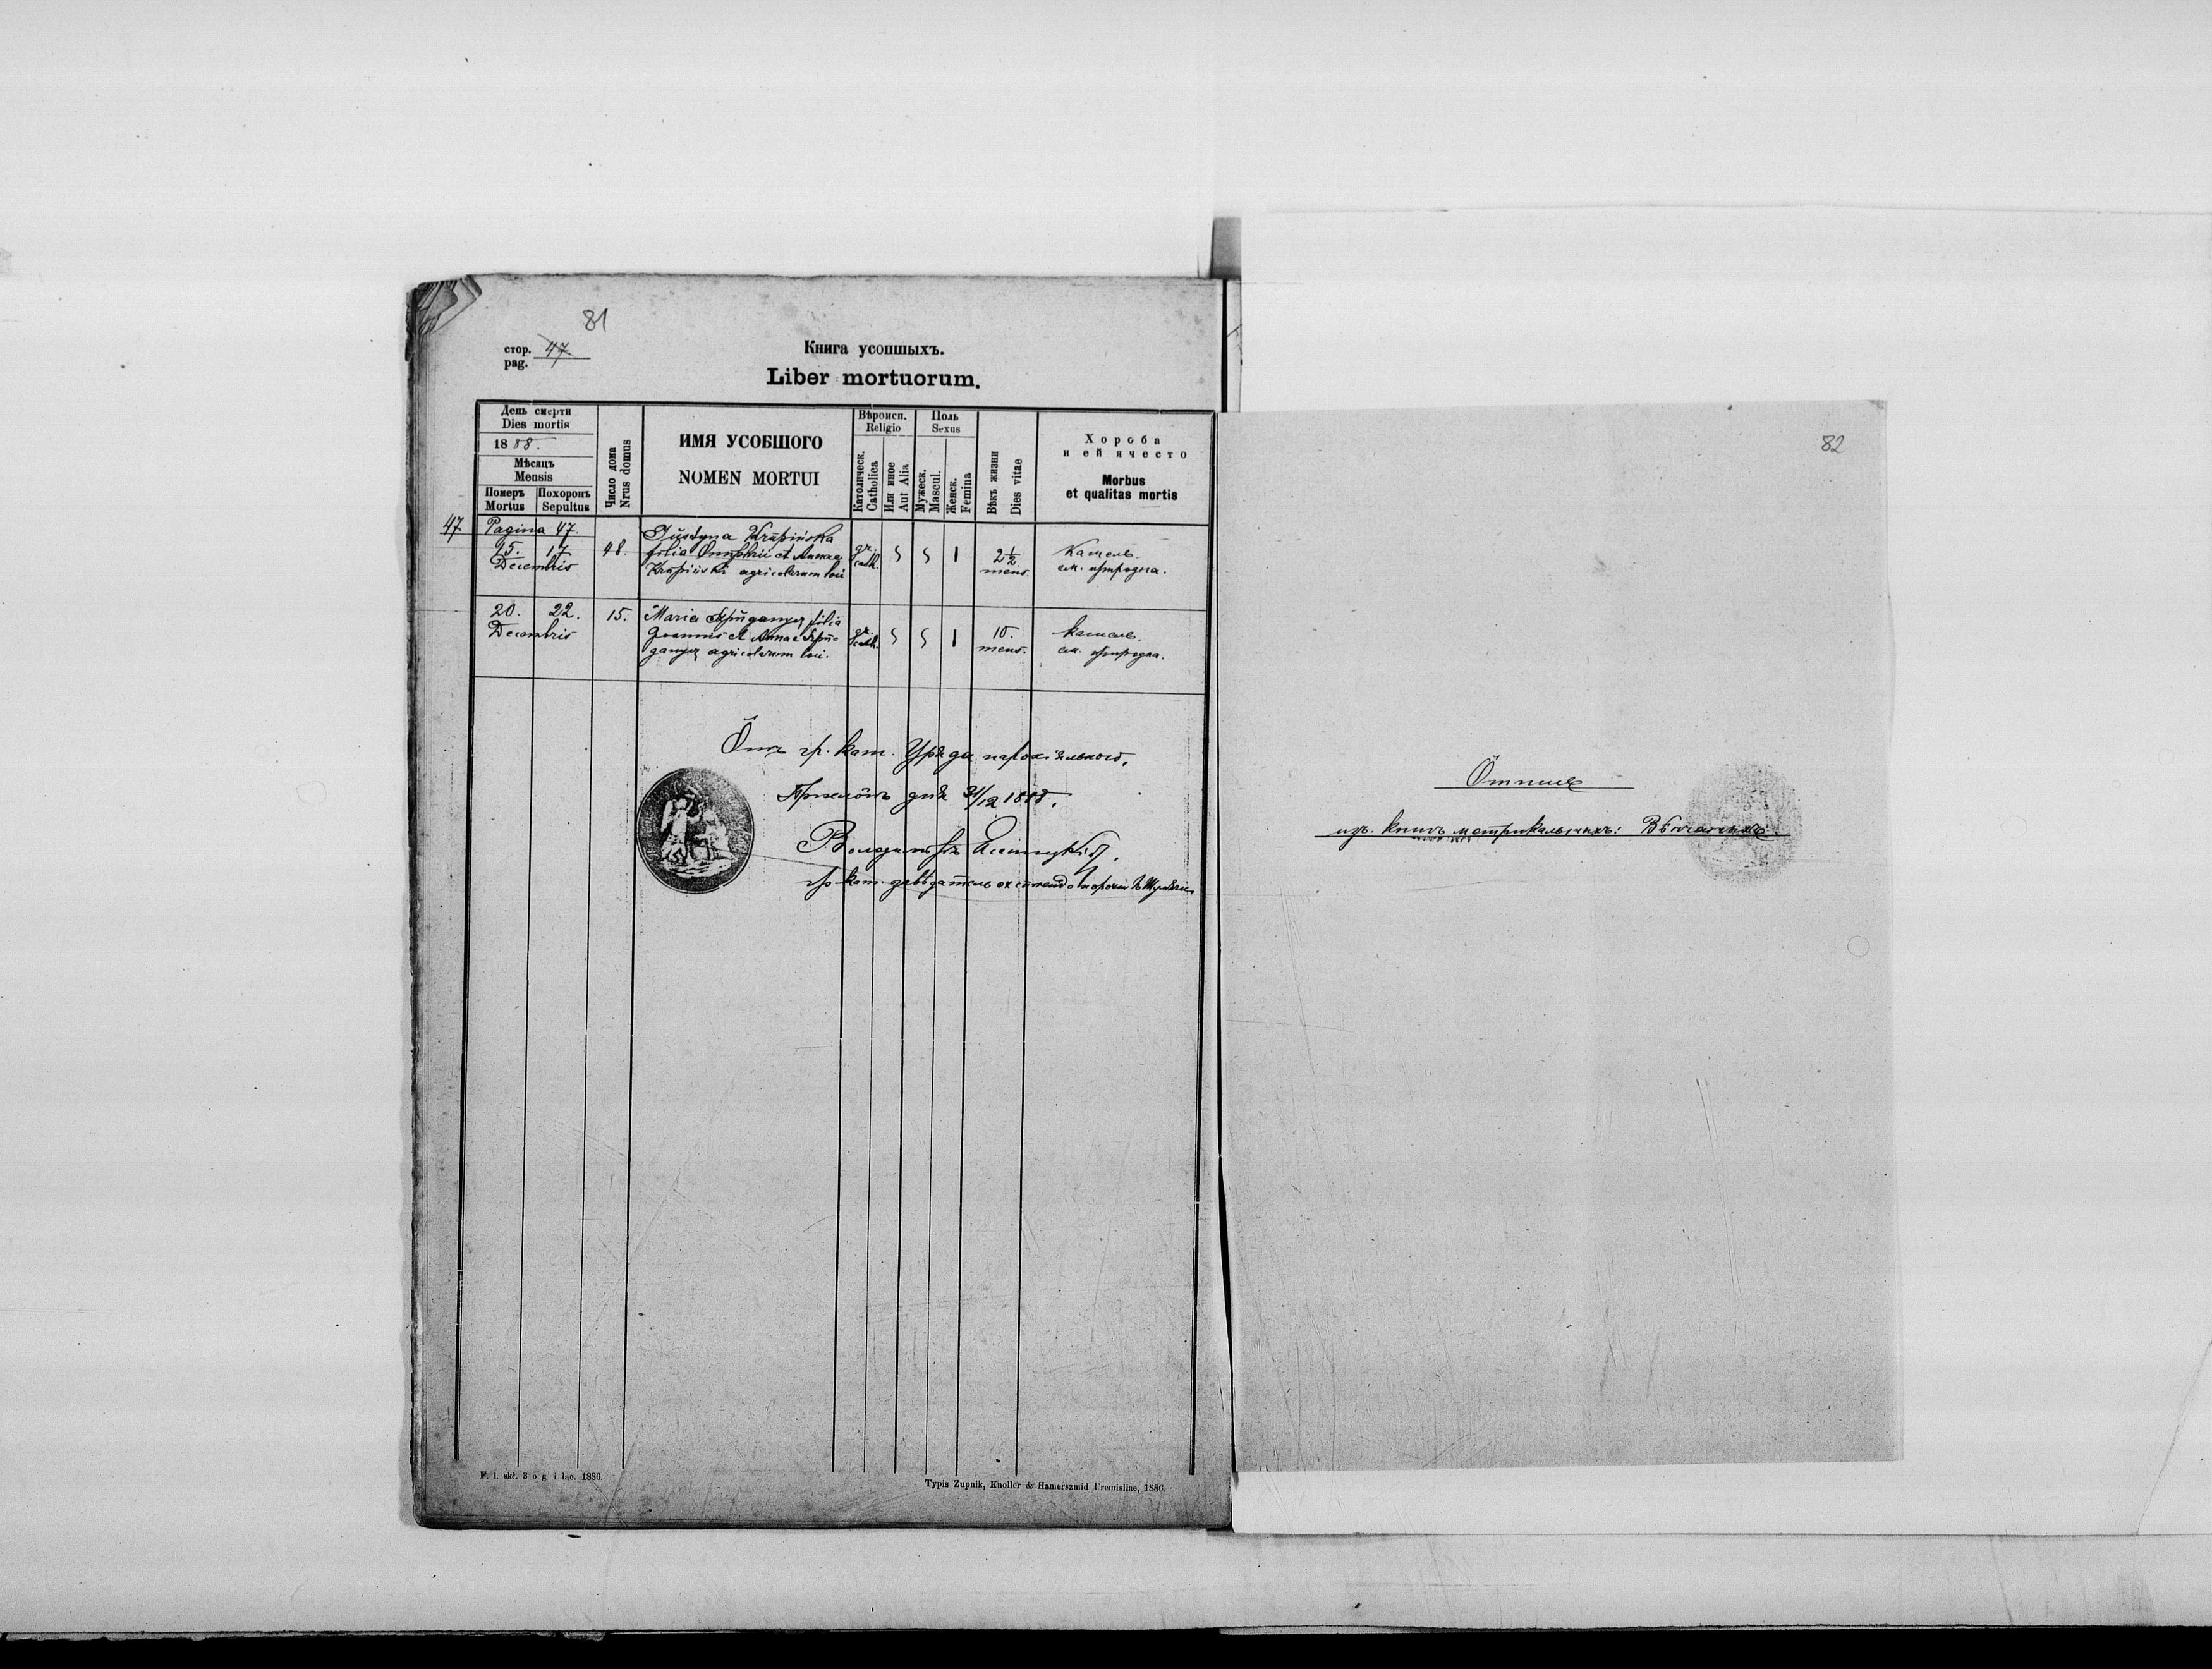 81
стор. 47
pag.
Книга усопшыхъ.
Liber mortuorum.
День смерти
Dies mortis
1888.
Мѣсяць
Mensis
Померъ
Mortus
Похоронъ
Sepultus
Число дома
Nrus domus
ИМЯ УСОБШОГО
NOMEN MORTUI
Вѣроисп.
Religio
Католическ.
Catholica
Или иное
Aut Alia
Поль
Sexus
Мужеск.
Mascul.
Женск.
Femina
Вѣкъ жизни
Dies vitae
Хороба
и ей ячесто
Morbus
et qualitas mortis
47 Pagina 47.
15. 17. Decembris
48.
Justyna Krupińska
filia Onuphrii et Annae
Krupiński agricolarum loci
gr. cath.
1
2 1/2 mens.
Кашель.
см. природна.
20. 22. Decembris
15.
Maria filia
Joannis et Annae
agricolarum loci.
gr. cath.
1
10. mens.
Кашель.
см. природна.
Ôтъ гр. кат. Уряда парохіяльного.
дня 31/12 1888.
гр. кат.
F. l. skł. 3 o g i łac. 1886.
Typis Zupnik, Knoller & Hamerszmid Premisliae, 1886.
82
Ôтписъ
изъ книгъ метрикальныхъ: